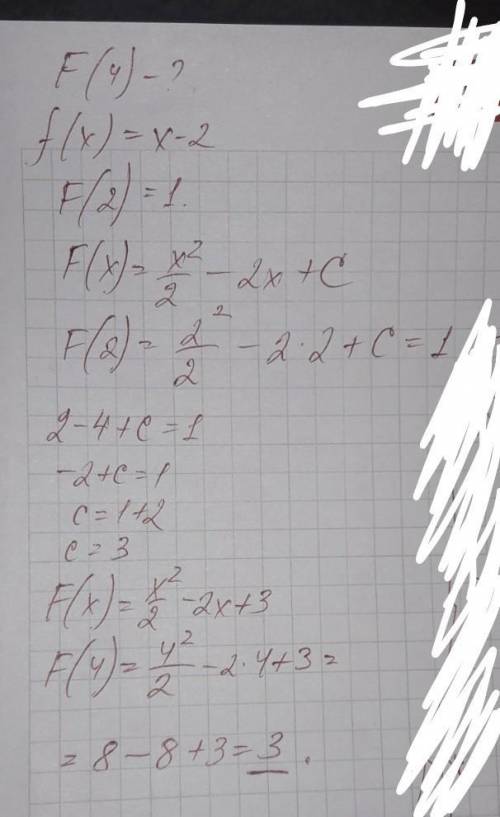 F(4) - ?
f(x) = x - 2
F(2) = 1.
F(x) = x²/2 - 2x + C
F(2) = 2²/2 - 2 · 2 + C = 1
2 - 4 + c = 1
-2 + c = 1
c = 1 + 2
c = 3
F(x) = x²/2 - 2x + 3
F(4) = 4²/2 - 2 · 4 + 3 =
= 8 - 8 + 3 = 3.